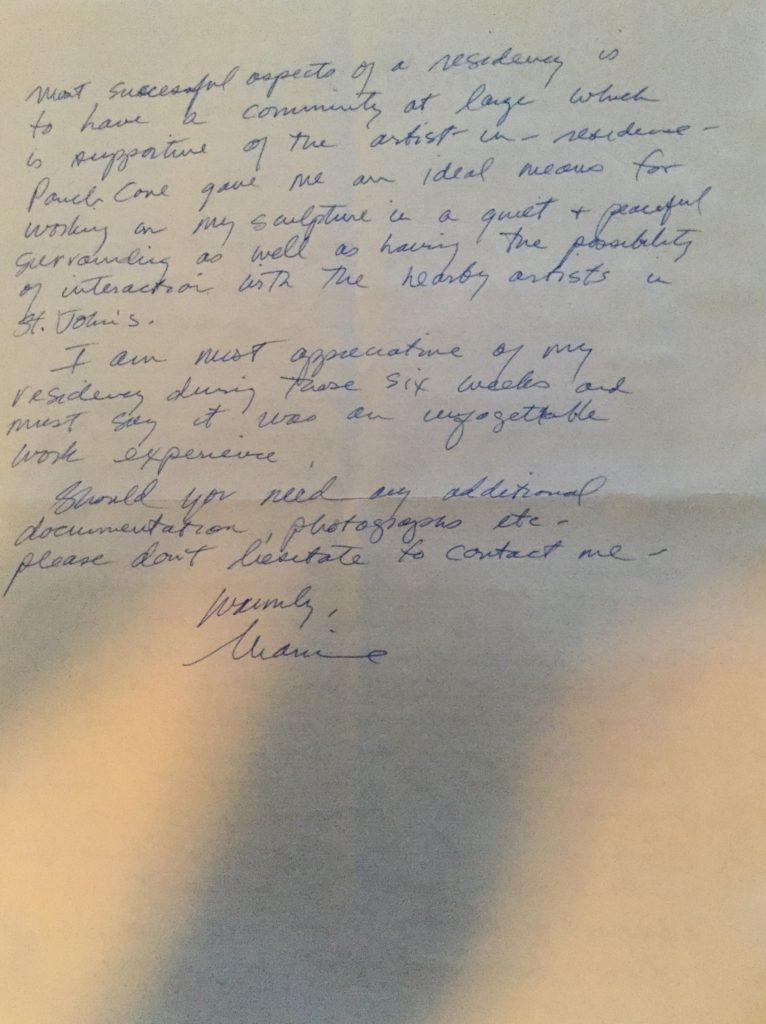 most successful aspects of a residency is
to have a community at large which
is supportive of the artist-in-residence-
Pouch Cove gave me an ideal means for
working on my sculpture in a quiet + peaceful
surrounding as well as having the possibility
of interaction with the nearby artists in
St. John's.
I am most appreciative of my
residency during those six weeks and
must say it was an unforgettable
work experience.
Should you need any additional
documentation, photographs etc-
please don't hesitate to contact me-
Warmly,